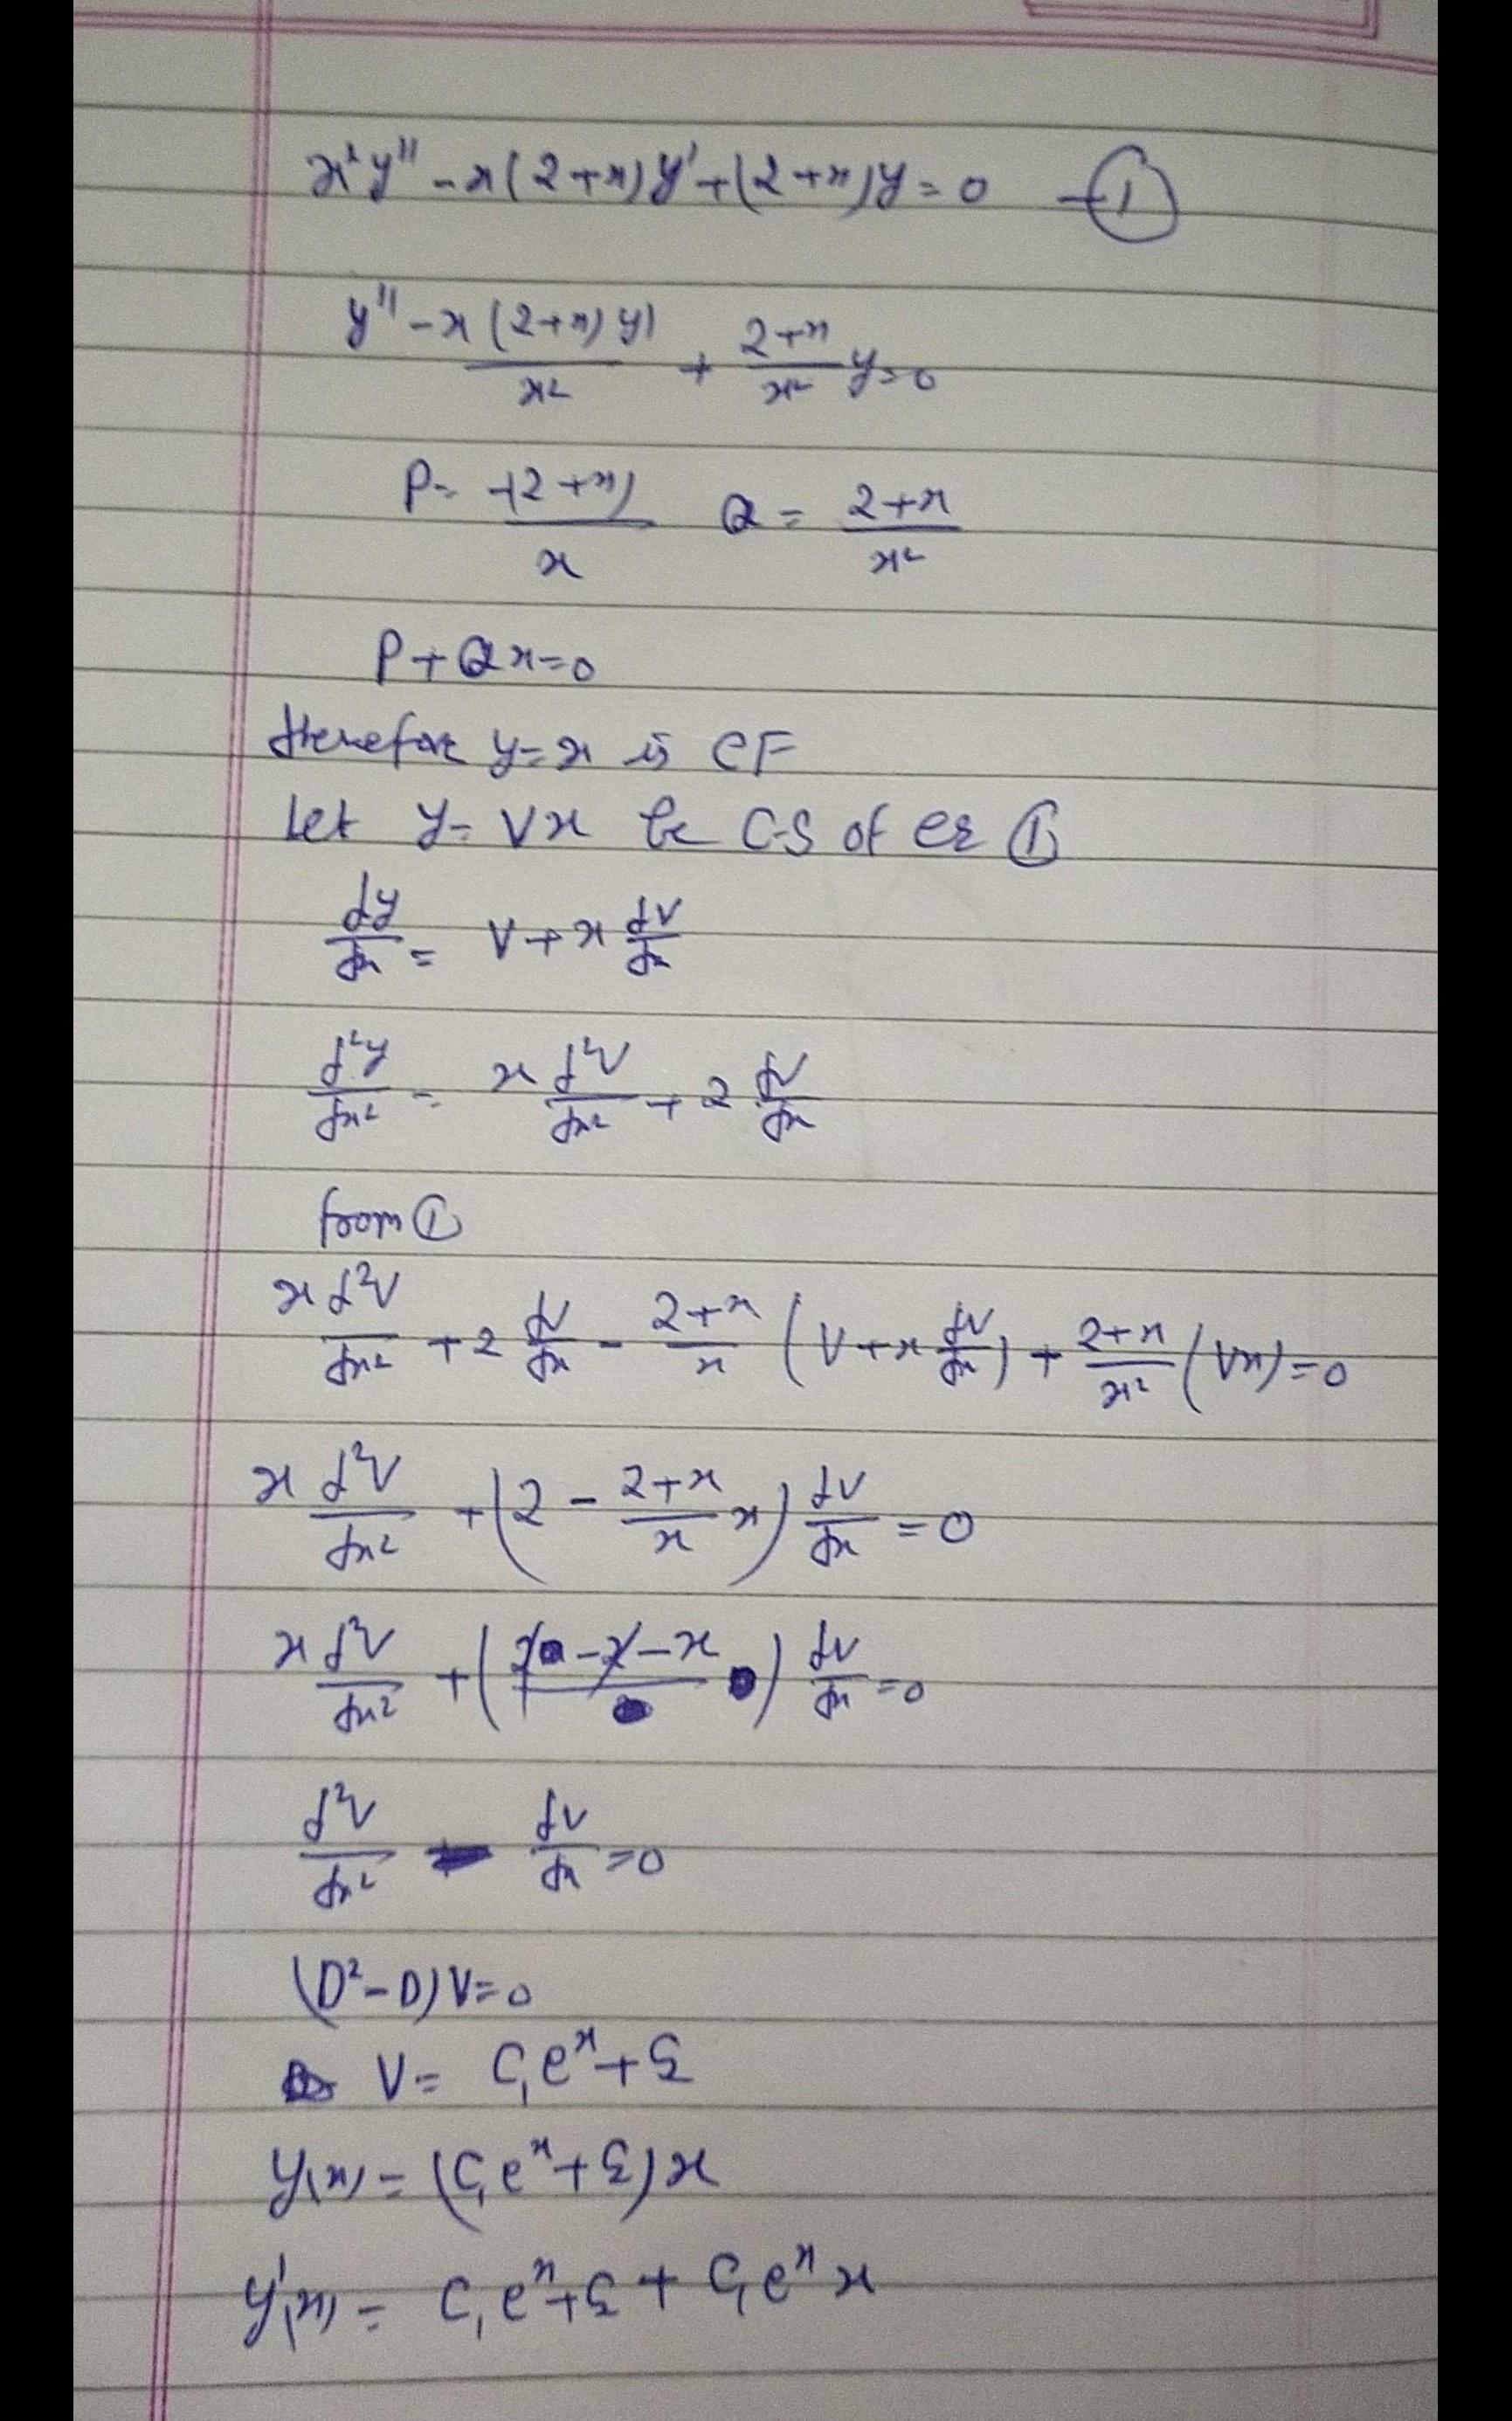 x²y'' - x(2+x)y' + (2+x)y = 0 — ①
y'' - x(2+x)y'/x² + (2+x)/x² y = 0
P = -(2+x)/x Q = (2+x)/x²
P + Qx = 0
therefore y = x is CF
Let y = Vx be C.S of eq ①
dy/dx = V + x dV/dx
d²y/dx² = x d²V/dx² + 2 dV/dx
from ①
x d²V/dx² + 2 dV/dx - (2+x)/x (V + x dV/dx) + (2+x)/x² (Vx) = 0
x d²V/dx² + (2 - (2+x)/x x) dV/dx = 0
x d²V/dx² + (2 - 2 - x) dV/dx = 0
d²V/dx² - dV/dx = 0
(D² - D)V = 0
V = C₁eˣ + C₂
y(x) = (C₁eˣ + C₂)x
y'(x) = C₁eˣ + C₂ + C₁eˣ x